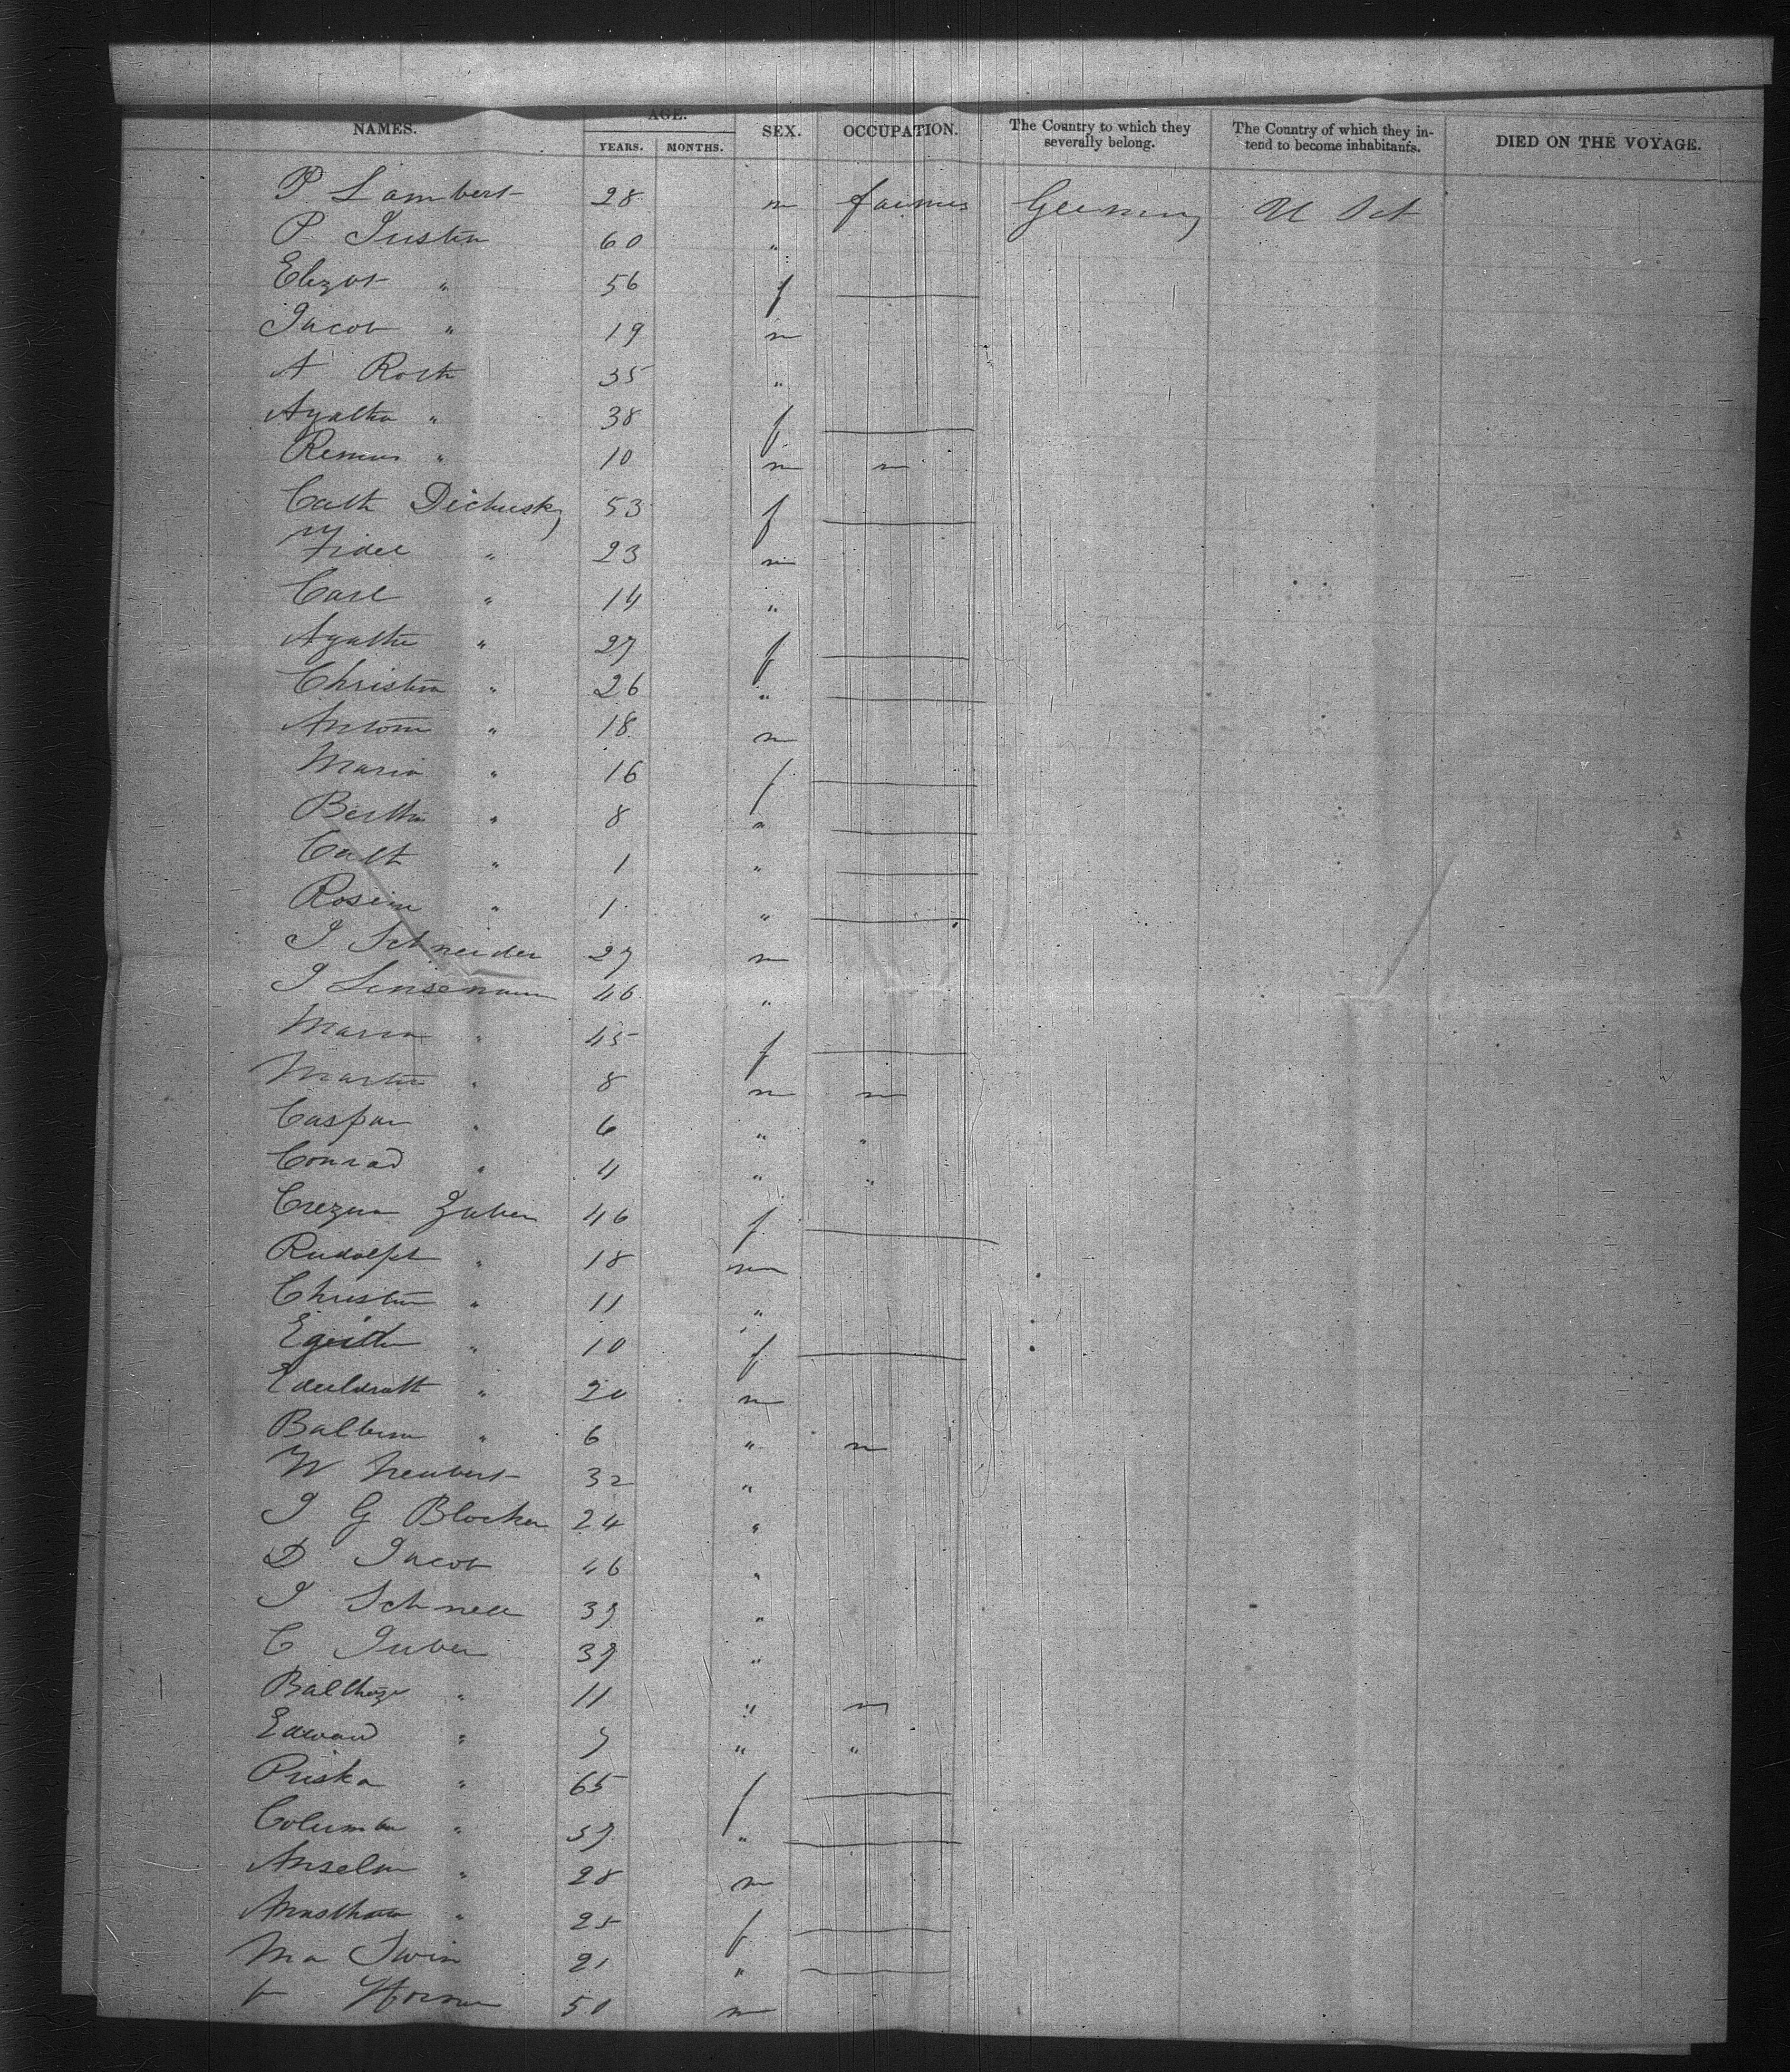 NAMES. AGE. SEX. OCCUPATION. The Country to which they severally belong. The Country of which they intend to become inhabitants. DIED ON THE VOYAGE.
YEARS. MONTHS.
P Lambert 28 m farmer Germany U Sts
P. Justin 60 "
Elizbt " 56 f
Jacob " 19 m
A Roth 35 "
Agatha " 38 f
Remus " 10 m
Cath 53 f
Fidel " 23 m
Carl " 14 "
Agathe " 27 f
Christin " 26 "
Antom " 18 m
Maria " 16 f
Bertha " 8 "
Cath " 1 "
Rosina " 1 "
J Schneider 27 m
J Linsemann 46 "
Maria " 45 f
Martin " 8 m
Caspar " 6 " "
Conrad " 4 " "
Crezen Huber 46 f
Rudolph " 18 m
Christin " 11 "
" 10 f
" 20 m
Balbina " 6 "
W Neubert 32 "
J G Blocher 24 "
D Jacob 46 "
J Schnell 37 "
C Huber 37 "
Balthazr " 11 "
Edward " 7 " "
Priska " 65 f
Columba " 37 "
Anselm " 28 m
" 25 f
Ma 21 "
50 m